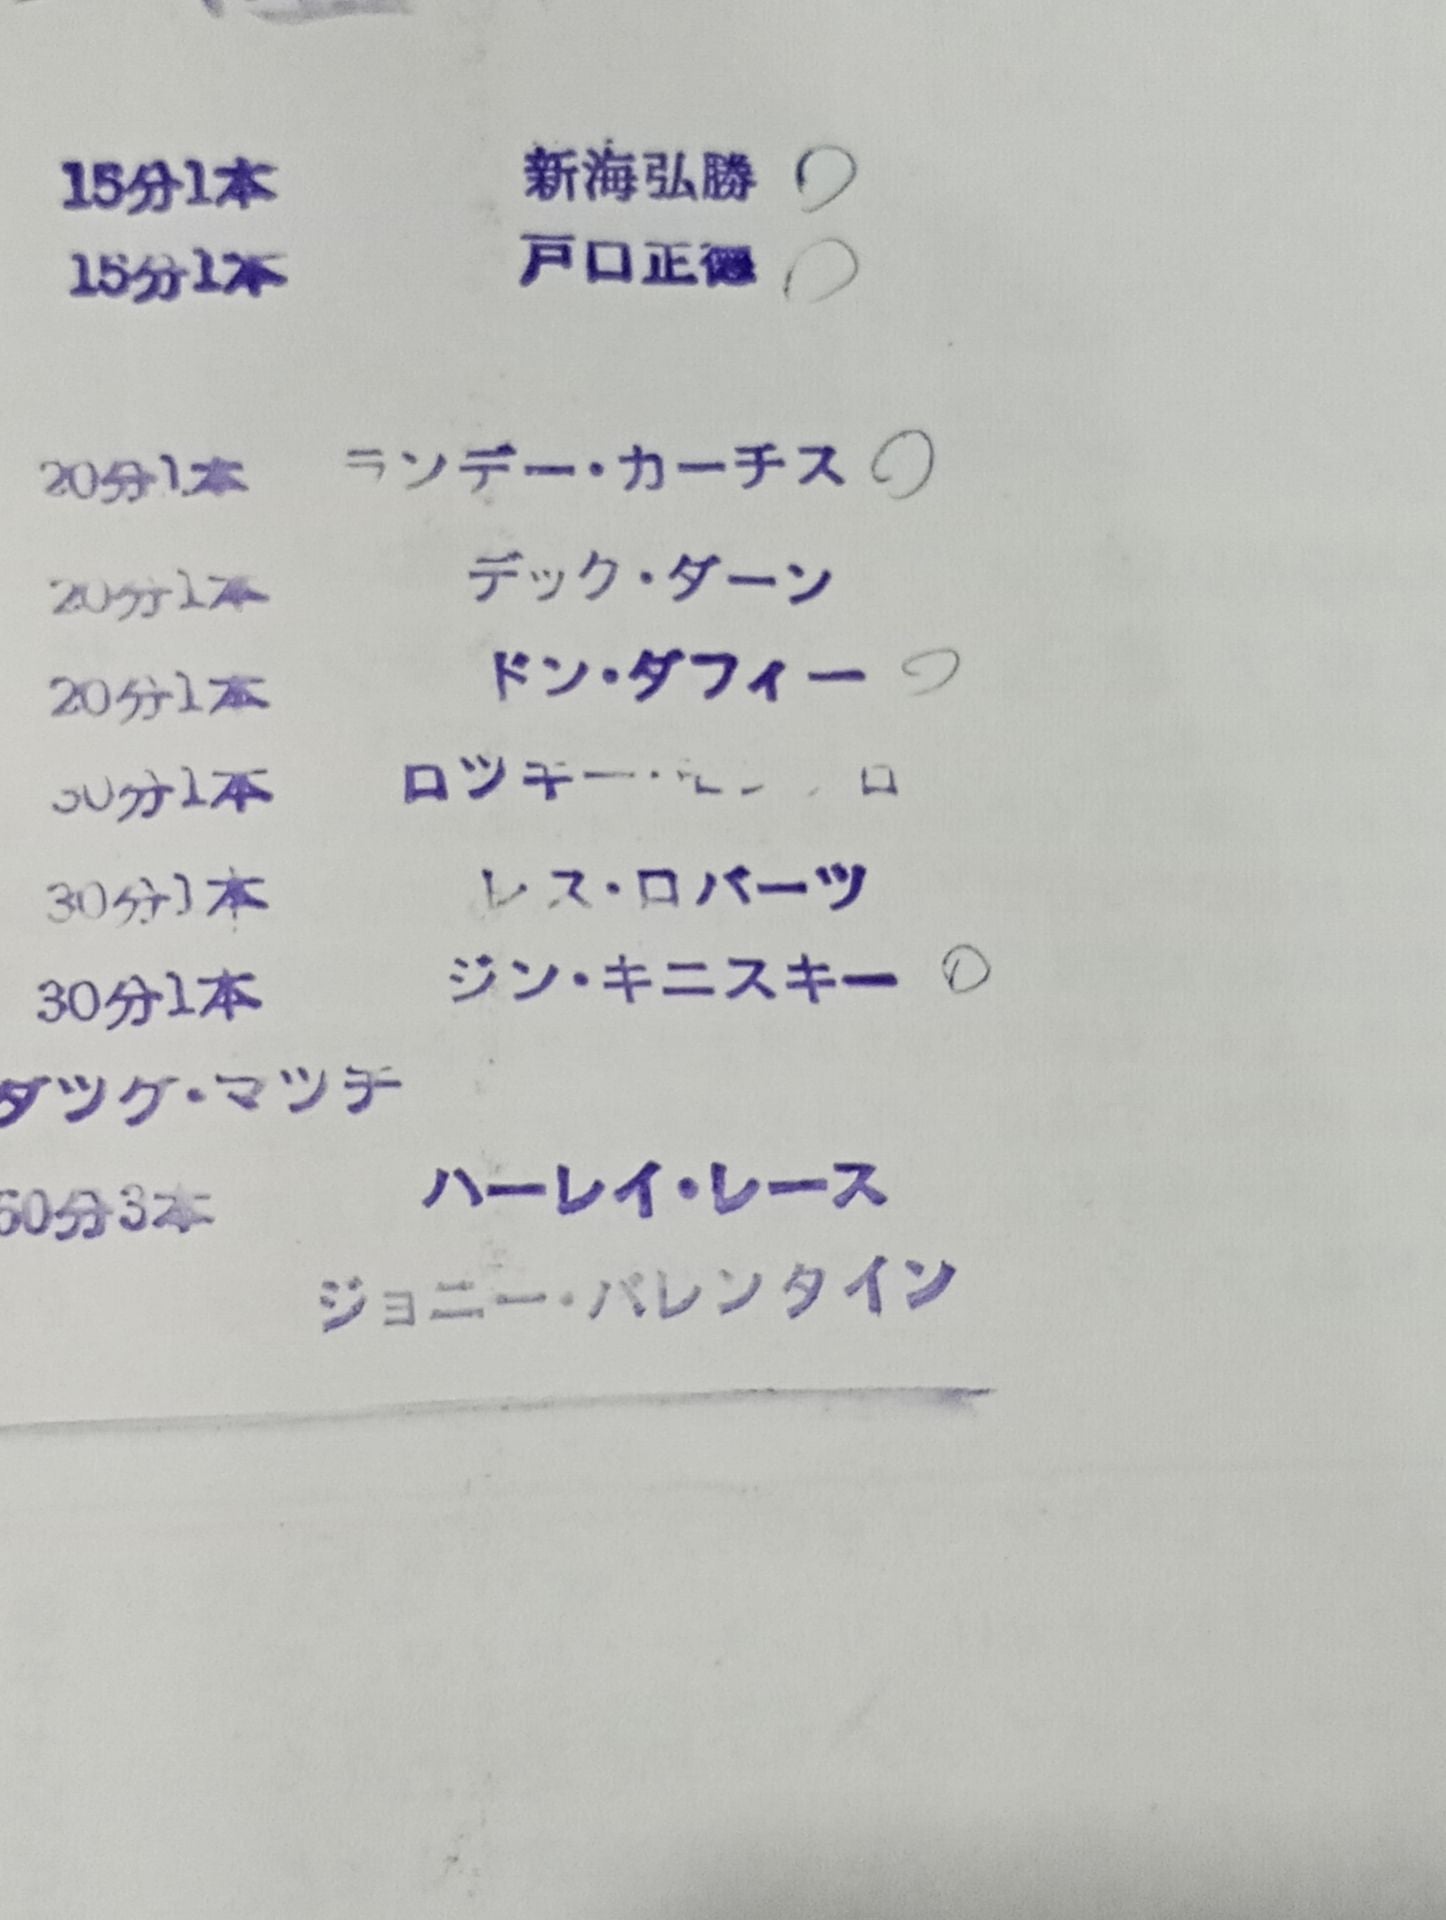 15分1本 新海弘勝 ○
15分1本 戸口正徳 ○
20分1本 ランデー・カーチス ○
20分1本 デック・ダーン
20分1本 ドン・ダフィー ○
30分1本 ロツキー・
30分1本 レス・ロバーツ
30分1本 ジン・キニスキー ○
ダツグ・マツチ
60分3本 ハーレイ・レース
ジョニー・バレンタイン